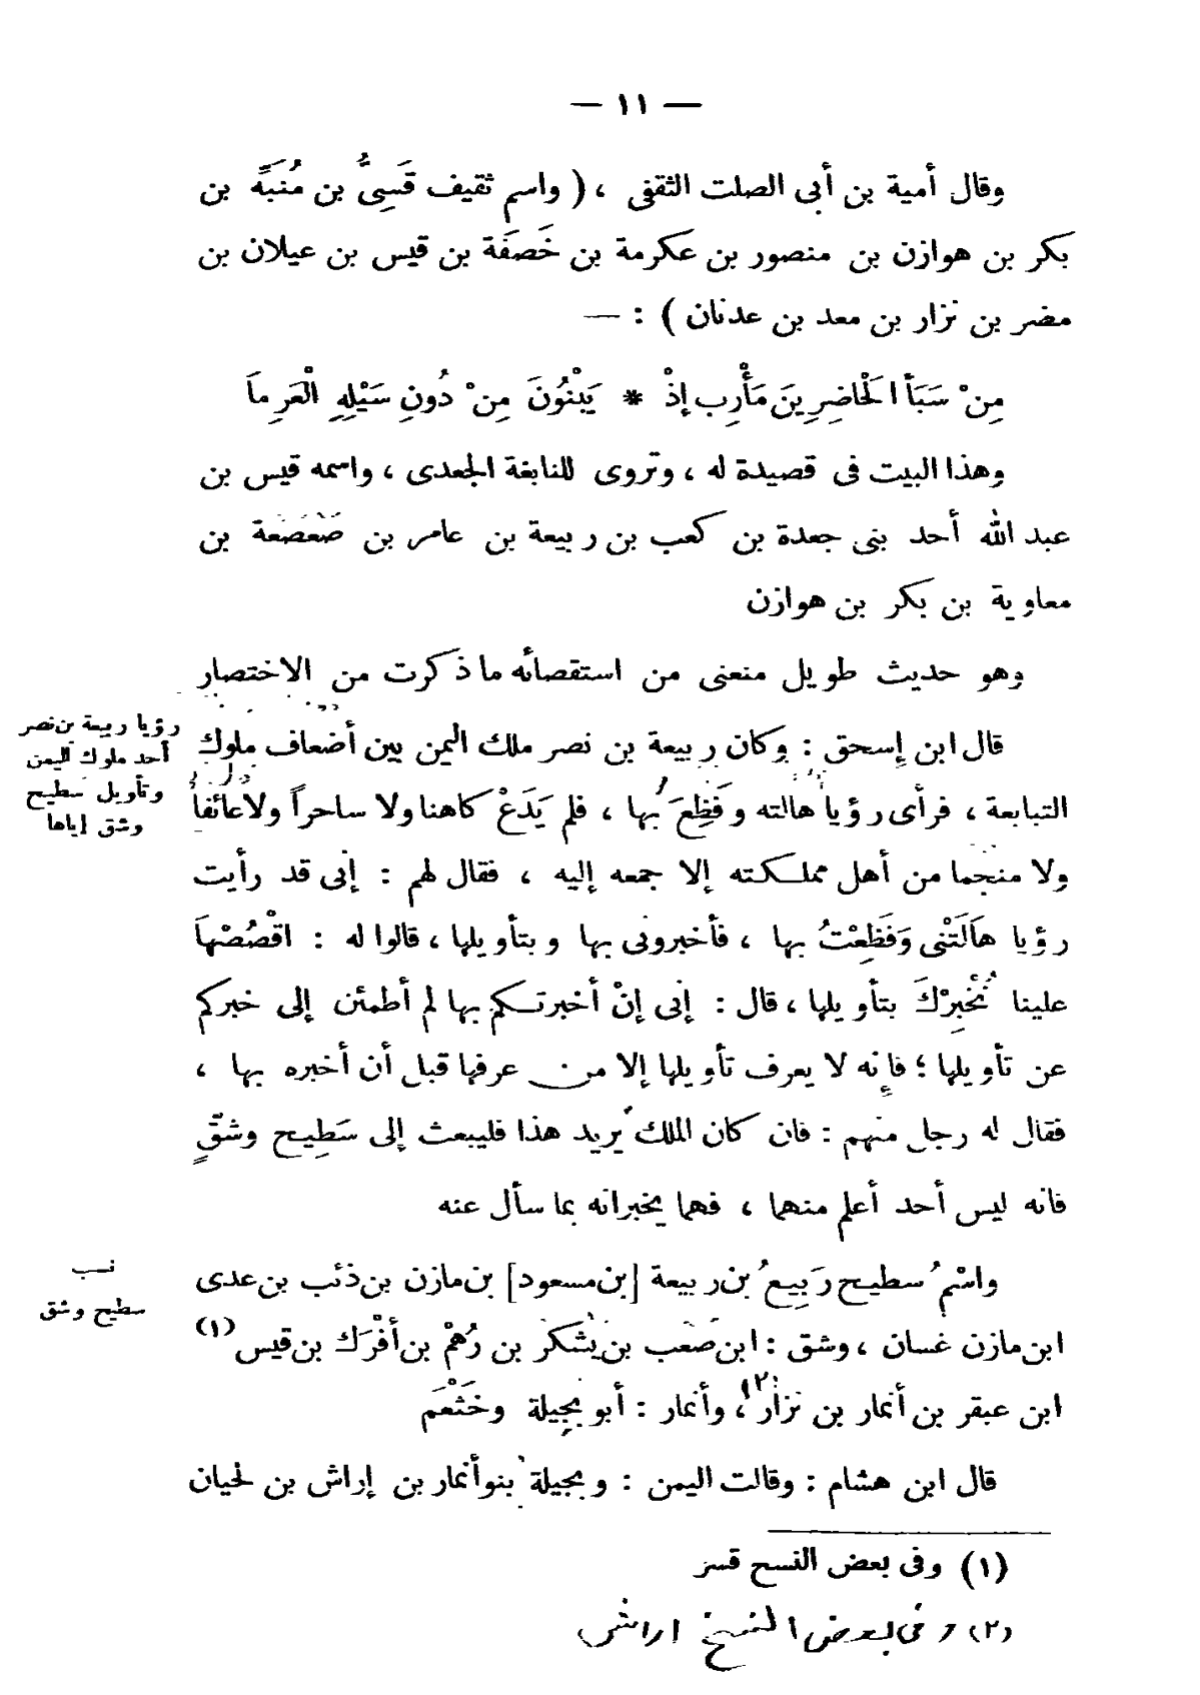 — ١١ —
وقال أمية بن أبى الصلت الثقفى ، ( واسم ثقيف قَسِىُّ بن مُنَبِّه بن
بكر بن هوازن بن منصور بن عكرمة بن خَصَفَة بن قيس بن عيلان بن
مضر بن نزار بن معد بن عدنان ) : —
مِنْ سَبَأ الْحَاضِرِينَ مَأْرِب إذْ * يَبْنُونَ مِنْ دُونِ سَيْلِهِ الْعَرِمَا
وهذا البيت فى قصيدة له ، وتروى للنابغة الجعدى ، واسمه قيس بن
عبد الله أحد بنى جعدة بن كعب بن ربيعة بن عامر بن صَعْصَعَة بن
معاوية بن بكر بن هوازن
وهو حديث طويل منعنى من استقصائه ما ذكرت من الاختصار
قال ابن إسحق : وكان ربيعة بن نصر ملك اليمن بين أضعاف ملوك
التبابعة ، فرأى رؤيا هالته وَفَظِعَ بُها ، فلم يَدَعْ كاهنا ولا ساحراً ولا عائفاً
ولا منجما من أهل مملكته إلا جمعه إليه ، فقال لهم : إنى قد رأيت
رؤيا هَالَتْنى وَفَظِعْتُ بها ، فأخبرونى بها وبتأويلها ، قالوا له : اقْصُصْهَا
علينا نُخْبِرْكَ بتأويلها ، قال : إنى إنْ أخبرتكم بها لم أطمئن إلى خبركم
عن تأويلها ؛ فإنه لا يعرف تأويلها إلا من عرفها قبل أن أخبره بها ،
فقال له رجل منهم : فان كان الملك يريد هذا فليبعث إلى سَطِيح وشقّ
فانه ليس أحد أعلم منهما ، فهما يخبرانه بما سأل عنه
واسْمُ سطيح رَبِيعُ بن ربيعة [بن مسعود] بن مازن بن ذئب بن عدى
ابن مازن غسان ، وشق : ابن صَعْب بن يَشْكُر بن رُهْمْ بن أفْرَك بن قيس (١)
ابن عبقر بن أنمار بن نزار (٢)، وأنمار : أبو بجيلة وخَثْعَمَ
قال ابن هشام : وقالت اليمن : وبجيلة بنو أنمار بن إراش بن لحيان
رؤيا ربيعة بن نصر
أحد ملوك اليمن
وتأويل سطيح
وشق إياها
نسب
سطيح وشق
(١) وفى بعض النسح قسر
(٢) وفى بعض النسخ اراش